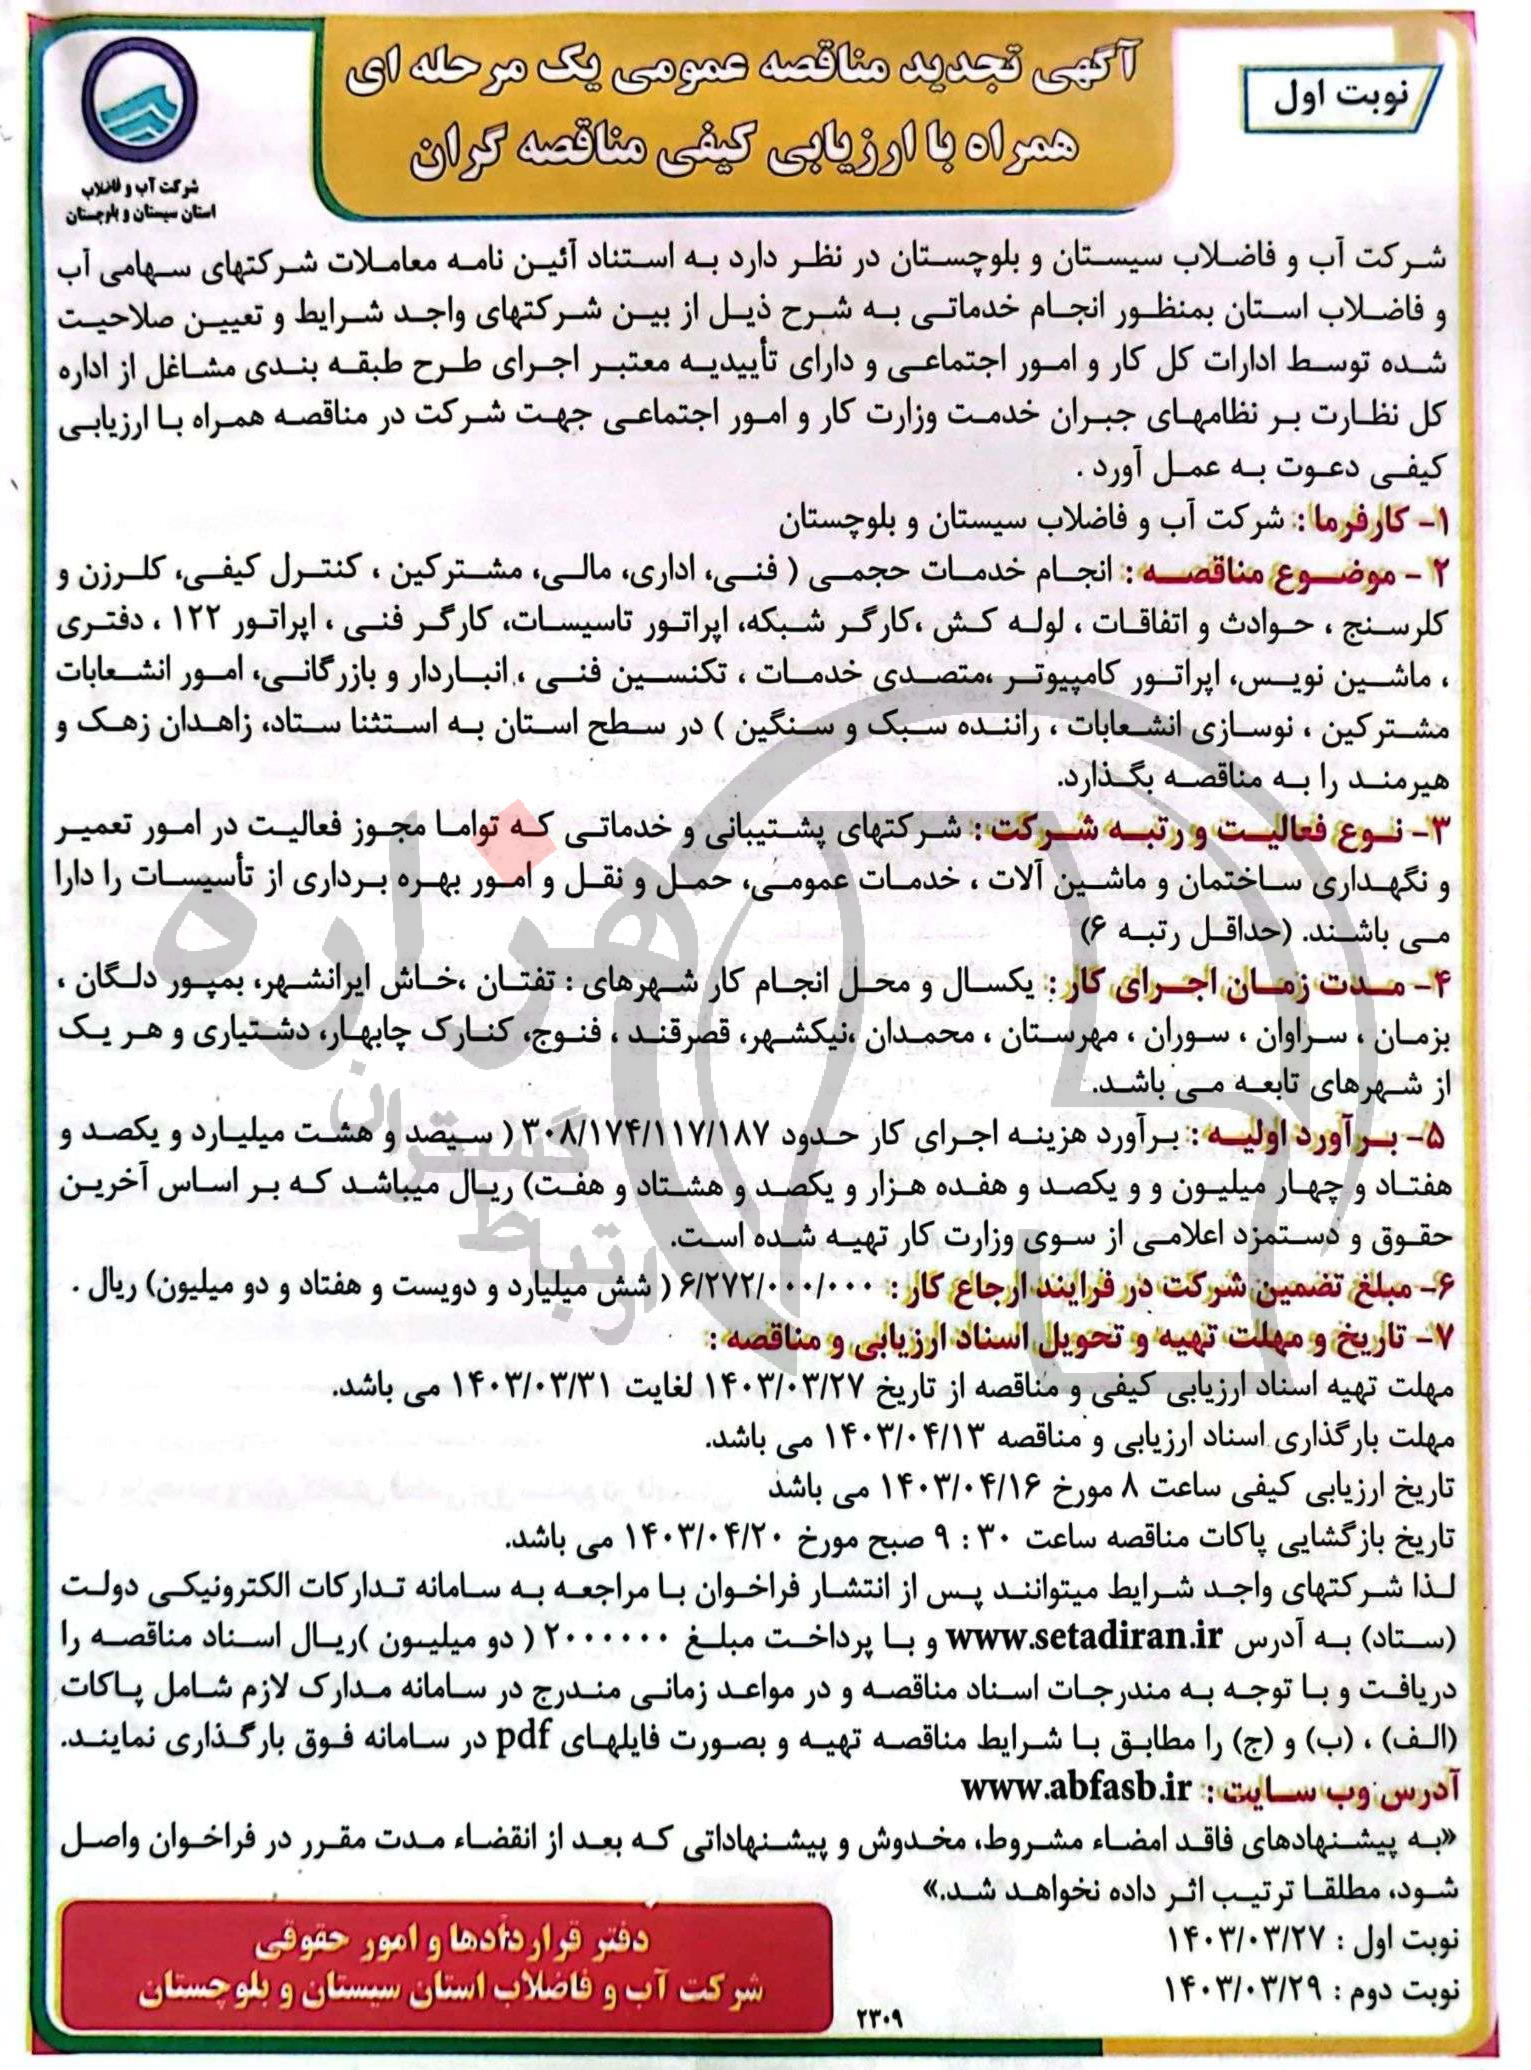 نوبت اول
آگهی تجدید مناقصه عمومی یک مرحله ای
همراه با ارزیابی کیفی مناقصه گران
شرکت آب و فاضلاب
استان سیستان و بلوچستان
شرکت آب و فاضلاب سیستان و بلوچستان در نظر دارد به استناد آئین نامه معاملات شرکتهای سهامی آب
و فاضلاب استان بمنظور انجام خدماتی به شرح ذیل از بین شرکتهای واجد شرایط و تعیین صلاحیت
شده توسط ادارات کل کار و امور اجتماعی و دارای تأییدیه معتبر اجرای طرح طبقه بندی مشاغل از اداره
کل نظارت بر نظامهای جبران خدمت وزارت کار و امور اجتماعی جهت شرکت در مناقصه همراه با ارزیابی
کیفی دعوت به عمل آورد .
۱- کارفرما : شرکت آب و فاضلاب سیستان و بلوچستان
۲ - موضوع مناقصه : انجام خدمات حجمی ( فنی، اداری، مالی، مشترکین ، کنترل کیفی، کلرزن و
کلرسنج ، حوادث و اتفاقات ، لوله کش ،کارگر شبکه، اپراتور تاسیسات، کارگر فنی ، اپراتور ۱۲۲ ، دفتری
، ماشین نویس، اپراتور کامپیوتر ،متصدی خدمات ، تکنسین فنی ، انباردار و بازرگانی، امور انشعابات
مشترکین ، نوسازی انشعابات ، راننده سبک و سنگین ) در سطح استان به استثنا ستاد، زاهدان زهک و
هیرمند را به مناقصه بگذارد.
۳- نوع فعالیت و رتبه شرکت : شرکتهای پشتیبانی و خدماتی که تواما مجوز فعالیت در امور تعمیر
و نگهداری ساختمان و ماشین آلات ، خدمات عمومی، حمل و نقل و امور بهره برداری از تأسیسات را دارا
می باشند. (حداقل رتبه ۶)
۴- مدت زمان اجرای کار : یکسال و محل انجام کار شهرهای : تفتان ،خاش ایرانشهر، بمپور دلگان ،
بزمان ، سراوان ، سوران ، مهرستان ، محمدان ،نیکشهر، قصرقند ، فنوج، کنارک چابهار، دشتیاری و هر یک
از شهرهای تابعه می باشد.
۵- برآورد اولیه : برآورد هزینه اجرای کار حدود ۳۰۸/۱۷۴/۱۱۷/۱۸۷ ( سیصد و هشت میلیارد و یکصد و
هفتاد و چهار میلیون و و یکصد و هفده هزار و یکصد و هشتاد و هفت) ریال میباشد که بر اساس آخرین
حقوق و دستمزد اعلامی از سوی وزارت کار تهیه شده است.
۶- مبلغ تضمین شرکت در فرایند ارجاع کار : ۶/۲۷۲/۰۰۰/۰۰۰ ( شش میلیارد و دویست و هفتاد و دو میلیون) ریال .
۷- تاریخ و مهلت تهیه و تحویل اسناد ارزیابی و مناقصه :
مهلت تهیه اسناد ارزیابی کیفی و مناقصه از تاریخ ۱۴۰۳/۰۳/۲۷ لغایت ۱۴۰۳/۰۳/۳۱ می باشد.
مهلت بارگذاری اسناد ارزیابی و مناقصه ۱۴۰۳/۰۴/۱۳ می باشد.
تاریخ ارزیابی کیفی ساعت ۸ مورخ ۱۴۰۳/۰۴/۱۶ می باشد
تاریخ بازگشایی پاکات مناقصه ساعت ۳۰ : ۹ صبح مورخ ۱۴۰۳/۰۴/۲۰ می باشد.
لذا شرکتهای واجد شرایط میتوانند پس از انتشار فراخوان با مراجعه به سامانه تدارکات الکترونیکی دولت
(ستاد) به آدرس www.setadiran.ir و با پرداخت مبلغ ۲۰۰۰۰۰۰ ( دو میلیون )ریال اسناد مناقصه را
دریافت و با توجه به مندرجات اسناد مناقصه و در مواعد زمانی مندرج در سامانه مدارک لازم شامل پاکات
(الف) ، (ب) و (ج) را مطابق با شرایط مناقصه تهیه و بصورت فایلهای pdf در سامانه فوق بارگذاری نمایند.
آدرس وب سایت : www.abfasb.ir
«به پیشنهادهای فاقد امضاء مشروط، مخدوش و پیشنهاداتی که بعد از انقضاء مدت مقرر در فراخوان واصل
شود، مطلقا ترتیب اثر داده نخواهد شد.»
نوبت اول : ۱۴۰۳/۰۳/۲۷
نوبت دوم : ۱۴۰۳/۰۳/۲۹
دفتر قراردادها و امور حقوقی
شرکت آب و فاضلاب استان سیستان و بلوچستان
۲۳۰۹
هزاره
گستران
ارتباط